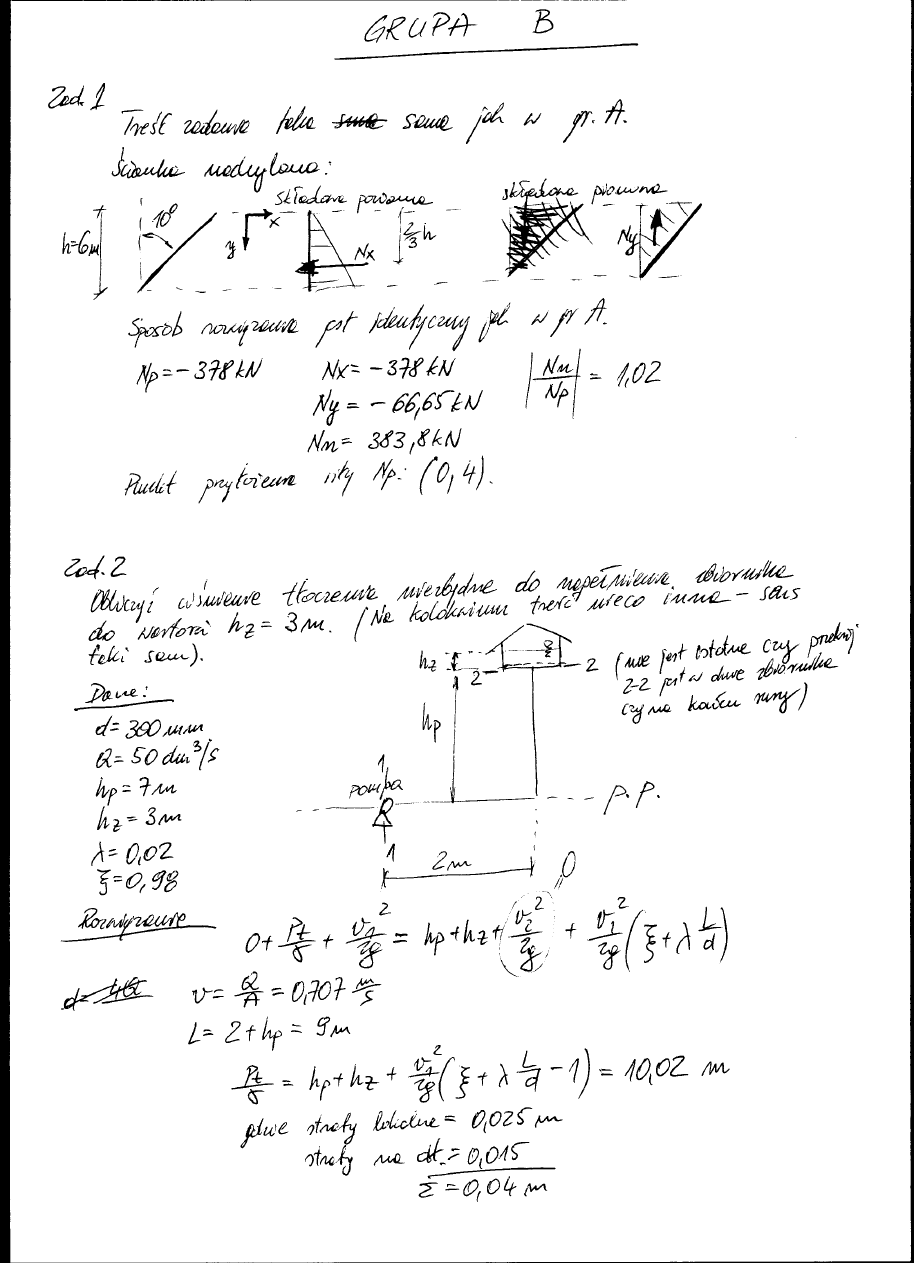 GRUPA B
Zad. 1
Treść zadania taka sama jak w gr. A.
Ścianka nachylona:
składowa pozioma
składowa pionowa
h=6m
10°
x
y
Nx
2/3 h
Ny
Sposób rozwiązania jest identyczny jak w gr A.
Np = -378 kN Nx = -378 kN |Nn/Np| = 1,02
Ny = -66,65 kN
Nn = 383,8 kN
Punkt przyłożenia siły Np: (0,4).
Zad. 2
Obliczyć ciśnienie tłoczenia niezbędne do napełnienia zbiornika
do wartości hz = 3m. (Na kolokwium treść nieco inna - sens
taki sam).
hz
2
2
(nie jest istotne czy przekrój
2-2 jest w dnie zbiornika
czy na końcu rury)
Dane:
d = 300 mm
Q = 50 dm³/s
hp = 7m
hz = 3m
λ = 0,02
ξ = 0,98
hp
1
pompa
p.p.
1
2m
Rozwiązanie
0
0 + Pt/γ + v1²/2g = hp + hz + v2²/2g + v1²/2g (ξ + λ L/d)
v = Q/A = 0,707 m/s
L = 2 + hp = 9m
Pt/γ = hp + hz + v1²/2g (ξ + λ L/d - 1) = 10,02 m
gdzie straty lokalne = 0,025 m
straty na dł. = 0,015
Σ = 0,04 m